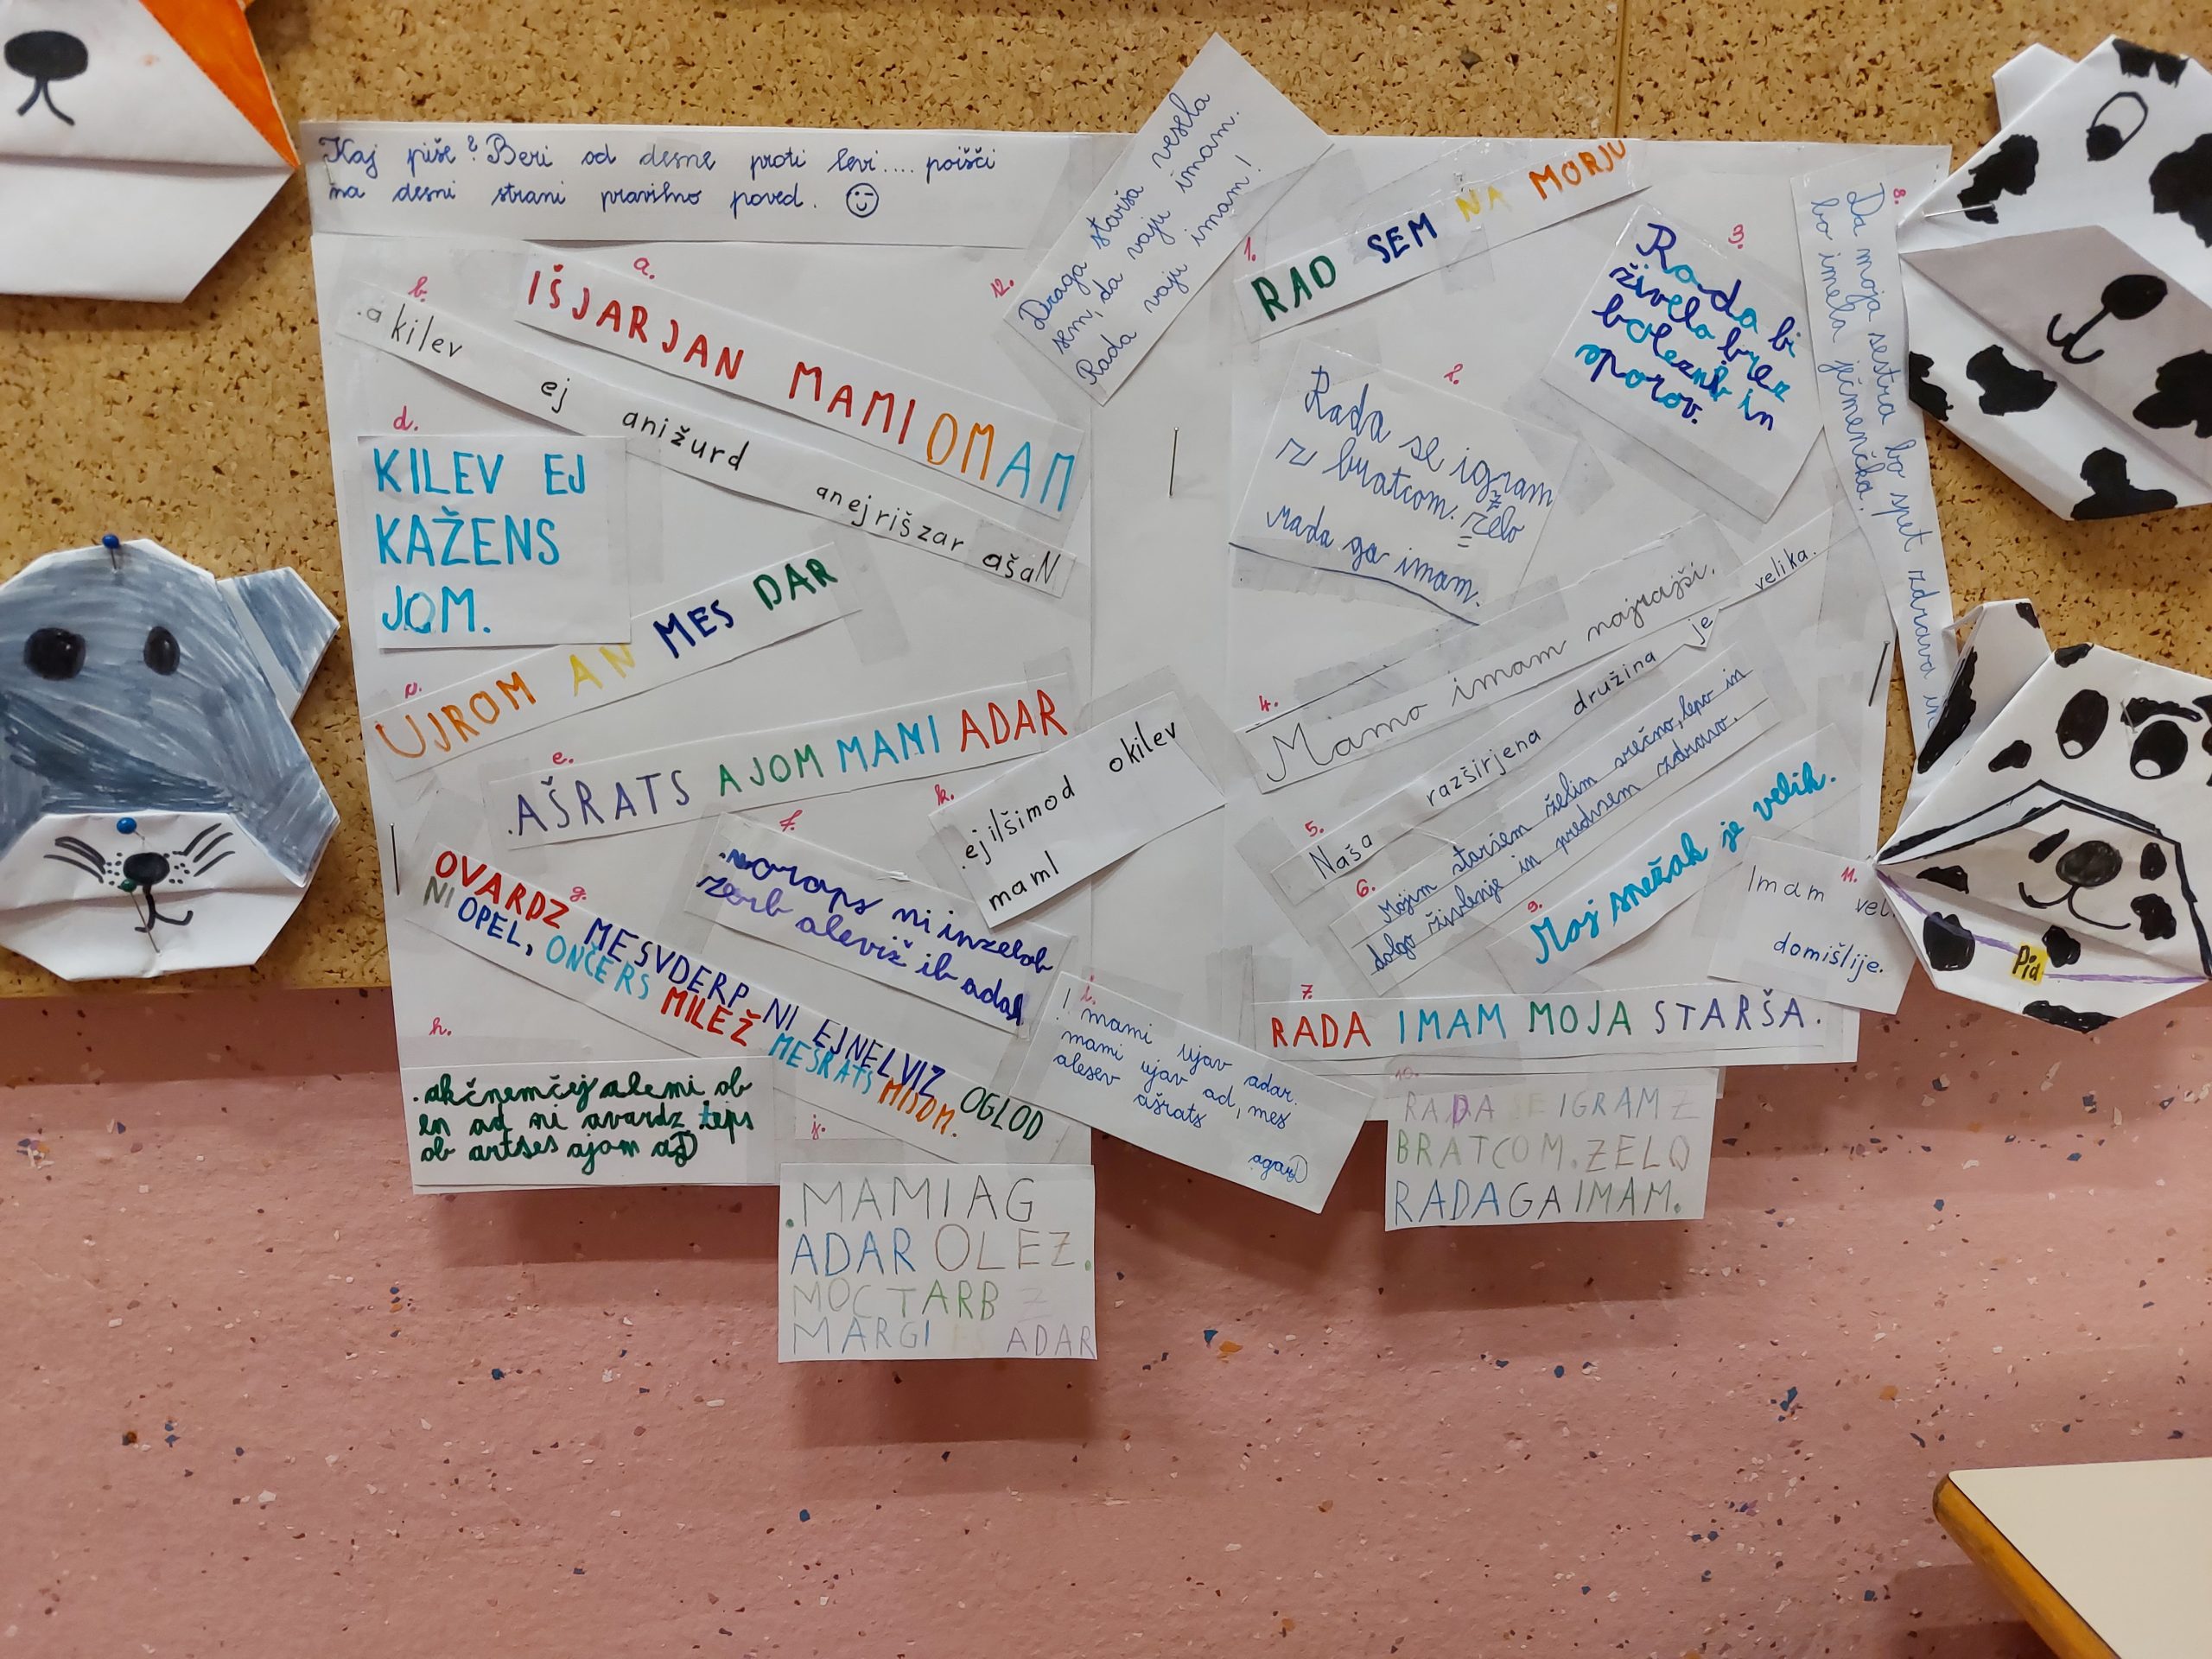 Kaj piše? Beri od desne proti levi.... poišči
na desni strani pravilno poved.
a.
IŠJARJAN MAMI OMAM
b.
.akilev ej anižurd anejrišzar ašaN
d.
KILEV EJ
KAŽENS
JOM.
c.
UJROM AN MES DAR
e.
.AŠRATS AJOM MAMI ADAR
f.
.vorops ni inzelob
zerb aleviž ib adaR
k.
.ejilšimod okilev
mamI
g.
OVARDZ MESVDERP NI EJNELVIZ OGLOD
NI OPEL, ONČERS MILEŽ MEŠRATS MIJOM.
h.
.akčnemčej alemi ob
en ad ni avardz teps
ob artses ajom aD
i.
! mami ujav adar.
mami ujav ad, mes
alesev ašrats
agarD
j.
.MAMI AG
ADAR OLEZ.
MOCTARB Z
MARGI ADAR
12.
Draga starša vesela
sem, da vaju imam.
Rada vaju imam!
1.
RAD SEM NA MORJU
2.
Rada se igram
z bratcom. Želo
rada ga imam.
3.
Rada bi
živela brez
boleznb in
sporov.
8.
Da moja sestra bo spet zdrava in
bo imela ječmenčka.
4.
Mamo imam najrajši.
5.
Naša razširjena družina je velika.
6.
Mojim staršem želim srečno, lepo in
dolgo življenje in predvsem zdravo.
9.
Moj snežak je velik.
11.
Imam vel
domišlije.
7.
RADA IMAM MOJA STARŠA.
10.
RADA SE IGRAM Z
BRATCOM. ZELO
RADA GA IMAM.
Pid